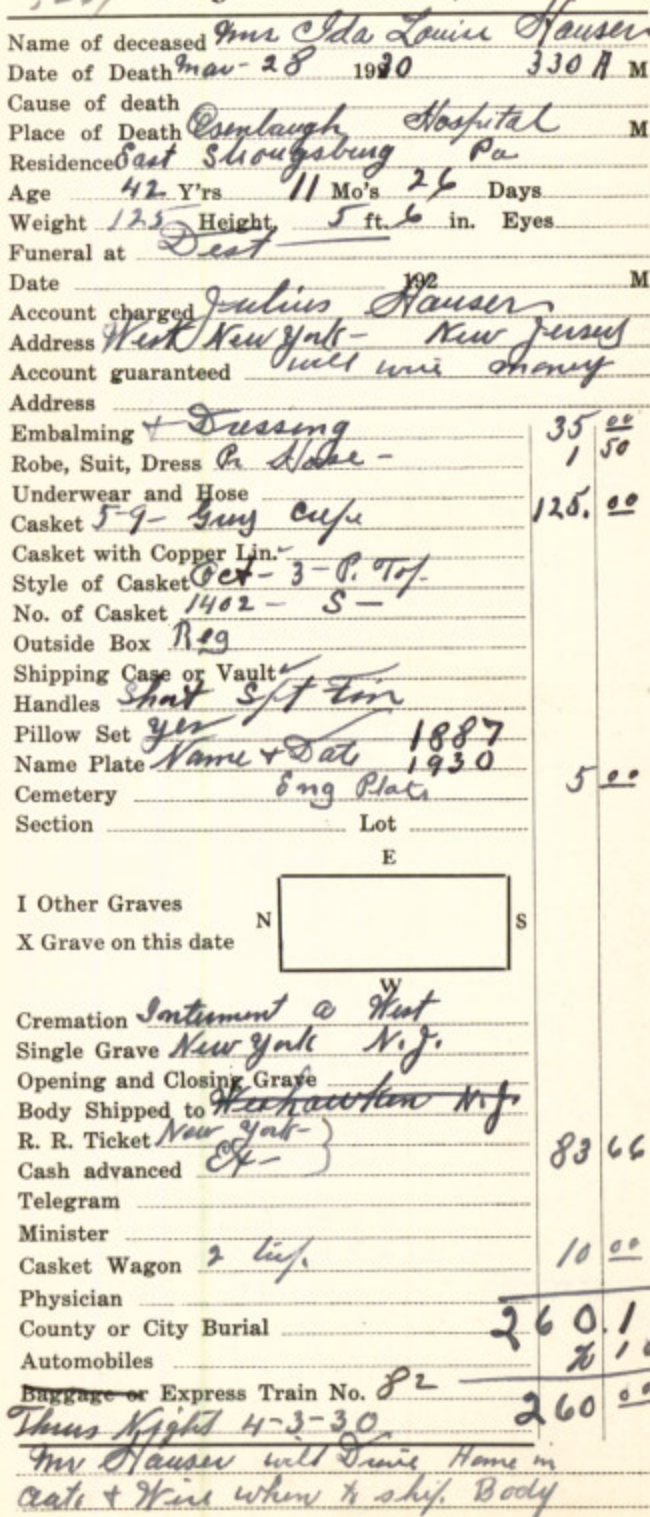 Name of deceased Mrs Ida Louise Hauser
Date of Death Mar - 28 1930 330 A M
Cause of death
Place of Death Esenbaugh Hospital M
Residence East Strougsburg Pa
Age 42 Y'rs 11 Mo's 26 Days
Weight 125 Height 5 ft. 6 in. Eyes
Funeral at Dest
Date 192 M
Account charged Julius Hauser
Address West New York - New Jersey
Account guaranteed will wire money
Address
Embalming + Dressing 35 00
Robe, Suit, Dress Pr Hose - 1 50
Underwear and Hose
Casket 5-9 - Grey Crepe 125. 00
Casket with Copper Lin.
Style of Casket Oct - 3 - P. Top
No. of Casket 1402 - S -
Outside Box Reg
Shipping Case or Vault ✓
Handles Short
Pillow Set yes 1887
Name Plate Name + Date 1930
Cemetery Eng Plate 5 00
Section Lot
E
I Other Graves
N S
X Grave on this date
W
Cremation Interment a West
Single Grave New York N.J.
Opening and Closing Grave
Body Shipped to Weehawken N.J.
R. R. Ticket New York -
Cash advanced Ex - 83 66
Telegram
Minister
Casket Wagon 2 10 00
Physician
County or City Burial 260.1
Automobiles 10
Baggage or Express Train No. 82 260 00
Thurs Night 4-3-30
Mr Hauser will Drive Home in
auto + Wire when to ship Body